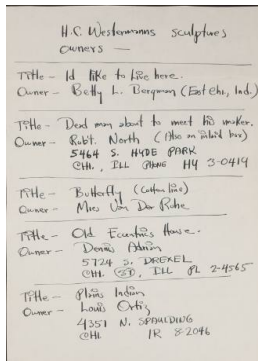 H.C. Westermanns sculptures
owners —
Title — Id like to live here.
Owner — Betty L. Bergman (East Chi, Ind.)
Title — Dead man about to meet his maker.
Owner — Rob't. North (Also an inlaid box)
5464 S. HYDE PARK
CHI., ILL PHONE HY 3-0414
Title — Butterfly
Owner — Mies Van Der Rohe
Title — Old Eccentric's House.
Owner — Dennis Adrian
5724 S. DREXEL
CHI. 37, ILL PL 2-4565
Title — Plains Indian
Owner — Louis Ortiz
4351 N. SPAULDING
CHI IR 8-2046